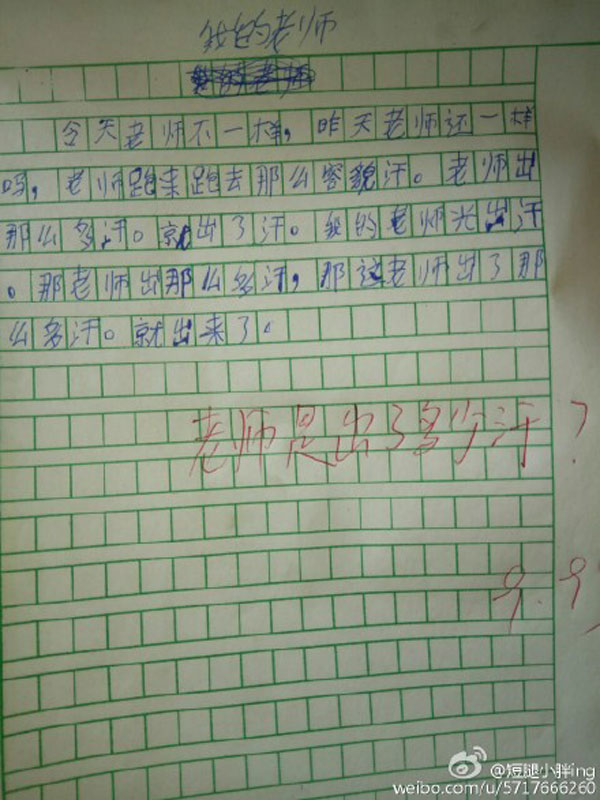 我的老师
今天老师不一样，昨天老师还一样
吗，老师跑来跑去那么容貌汗。老师出
那么多汗。就出了汗。我的老师光出汗
。那老师出那么多汗，那这老师出了那
么多汗。就出来了。
老师是出了多少汗？
9.9
@短腿小胖ing
weibo.com/u/5717666260